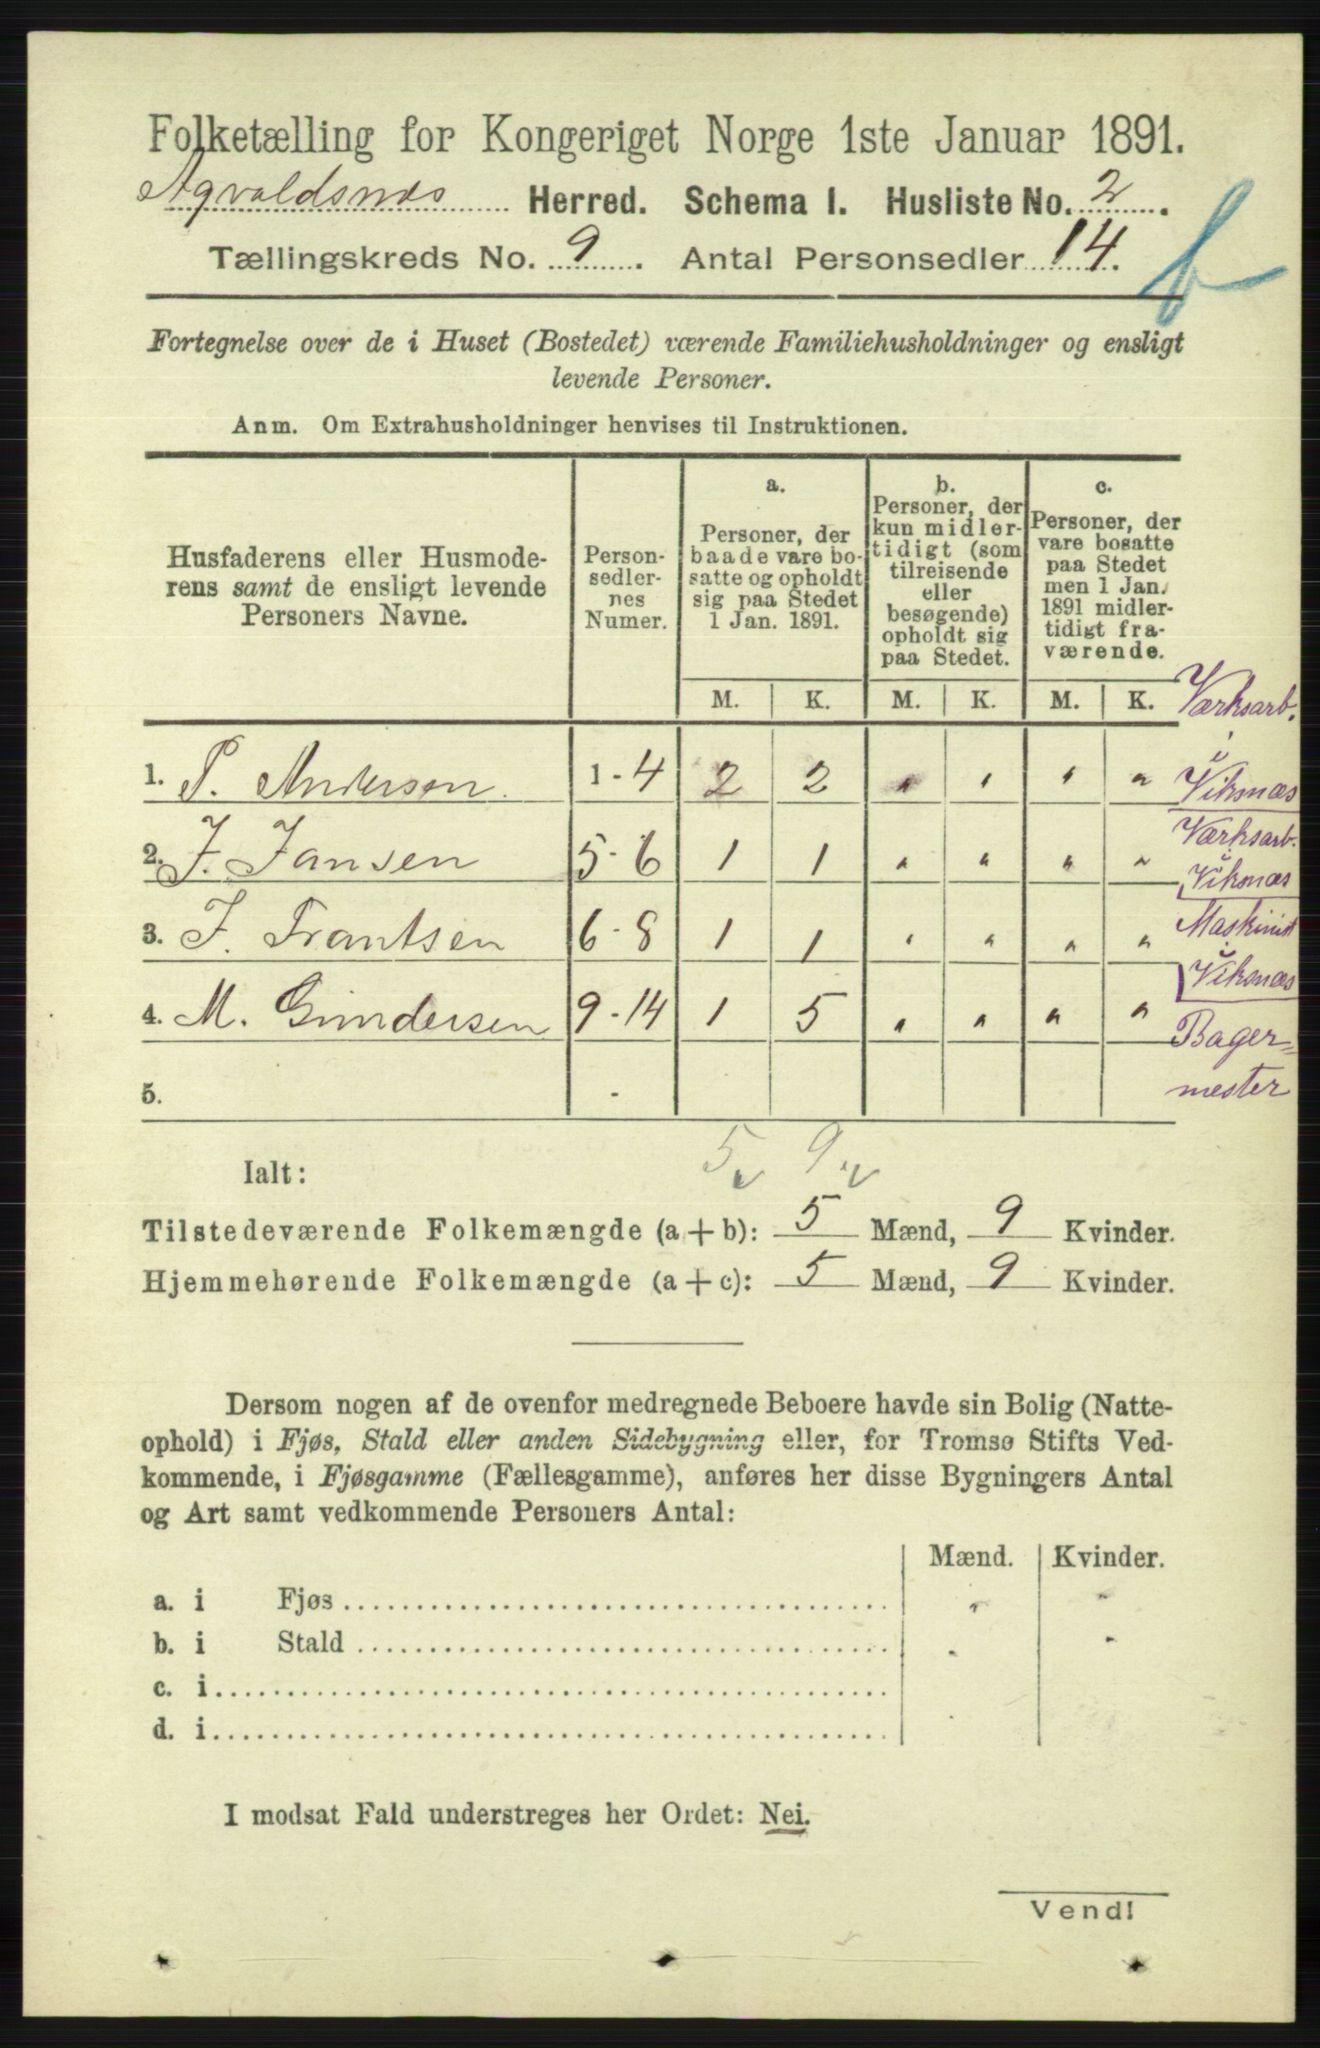 Folketælling for Kongeriget Norge 1ste Januar 1891.
Agvaldsnæs Herred. Schema I. Husliste No. 2.
Tællingskreds No. 9. Antal Personsedler 14.
b
Fortegnelse over de i Huset (Bostedet) værende Familiehusholdninger og ensligt
levende Personer.
Anm. Om Extrahusholdninger henvises til Instruktionen.
Husfaderens eller Husmode-
rens samt de ensligt levende
Personers Navne.
Person-
sedler-
nes
Numer.
a.
Personer, der
baade vare bo-
satte og opholdt
sig paa Stedet
1 Jan. 1891.
b.
Personer, der
kun midler-
tidigt (som
tilreisende
eller
besøgende)
opholdt sig
paa Stedet.
c.
Personer, der
vare bosatte
paa Stedet
men 1 Jan.
1891 midler-
tidigt fra-
værende.
M. K. M. K. M. K.
1. P. Andersen. 1-4 2 2 " " " " Værksarb. i Viksnæs
2. J. Jansen 5-6 1 1 " " " " Værksarb. i Viksnæs
3. J. Frantsen 6-8 1 1 " " " " Maskinist i Viksnæs
4. M. Gundersen 9-14 1 5 " " " " Bager=
mester
5. -
Ialt: 5 v 9 v
Tilstedeværende Folkemængde (a + b): 5 Mænd, 9 Kvinder.
Hjemmehørende Folkemængde (a + c): 5 Mænd, 9 Kvinder.
Dersom nogen af de ovenfor medregnede Beboere havde sin Bolig (Natte-
ophold) i Fjøs, Stald eller anden Sidebygning eller, for Tromsø Stifts Ved-
kommende, i Fjøsgamme (Fællesgamme), anføres her disse Bygningers Antal
og Art samt vedkommende Personers Antal:
Mænd. Kvinder.
a. i Fjøs " "
b. i Stald " "
c. i
d. i
I modsat Fald understreges her Ordet: Nei.
Vend!